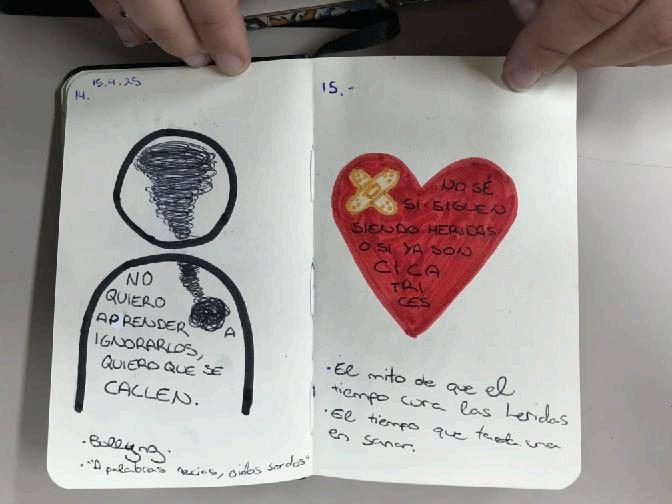 15.4.25
14.
NO
QUIERO
APRENDER A
IGNORARLOS,
QUIERO QUE SE
CALLEN.
·Bullying.
·"A palabras necias, oidos sordos"
15.-
NO SÉ
SI SIGUEN
SIENDO HERIDAS
O SI YA SON
CICA
TRI
CES
·El mito de que el
tiempo cura las heridas
·El tiempo que tarda una
en sanar.